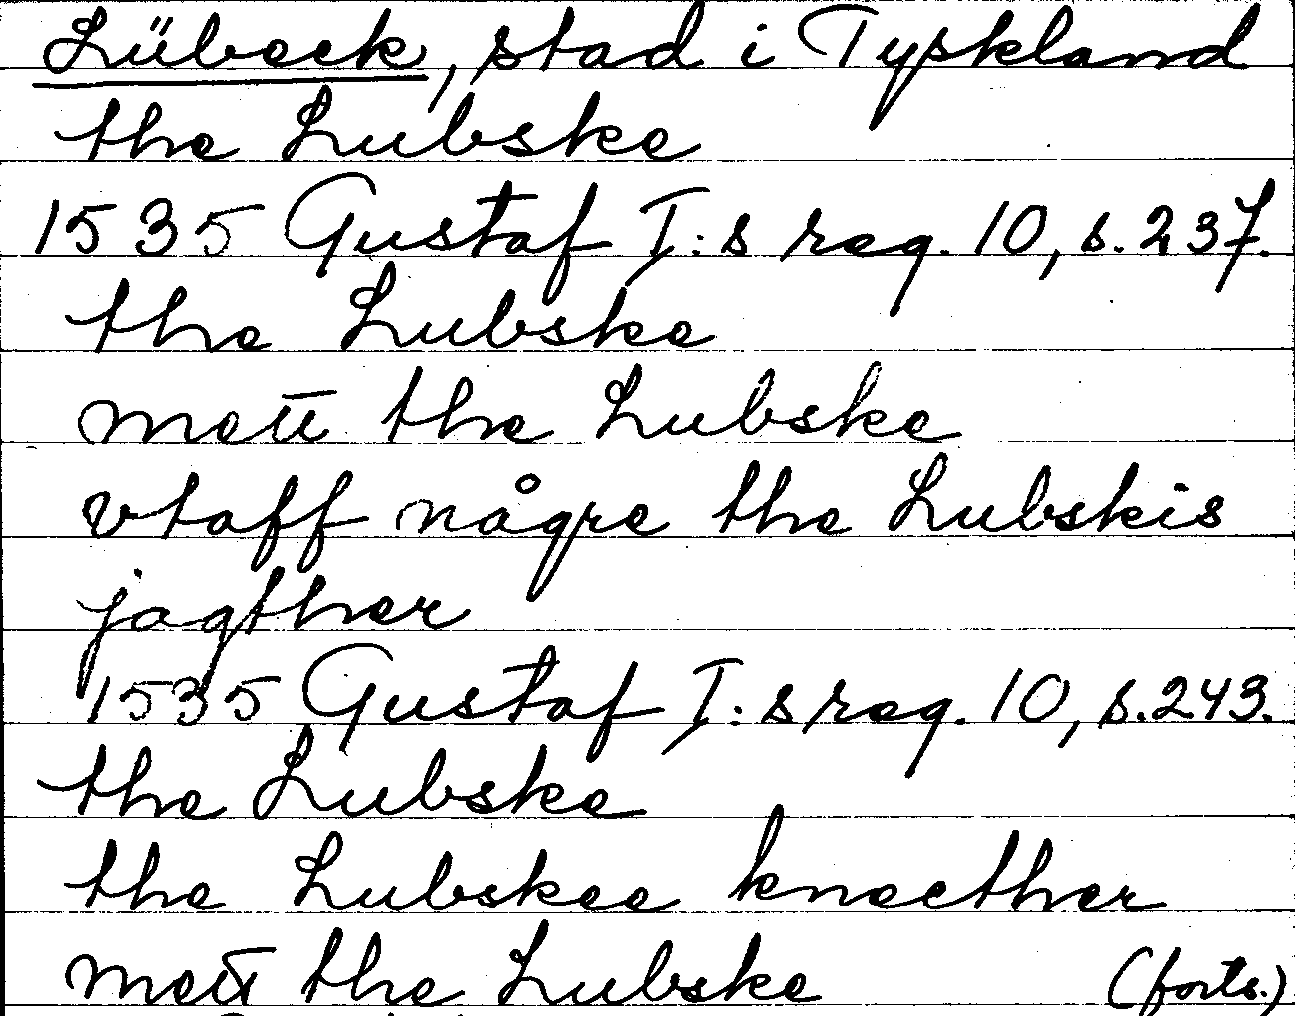 Lübeck, stad i Tyskland
the Lubske
1535 Gustaf I:s reg. 10, s. 237.
the Lubske
mett the Lubske
vtaff någre the Lubskis
jagther
1535 Gustaf I:s reg. 10, s. 243.
the Lubske
the Lubskee knecther
mett the Lubske (forts.)